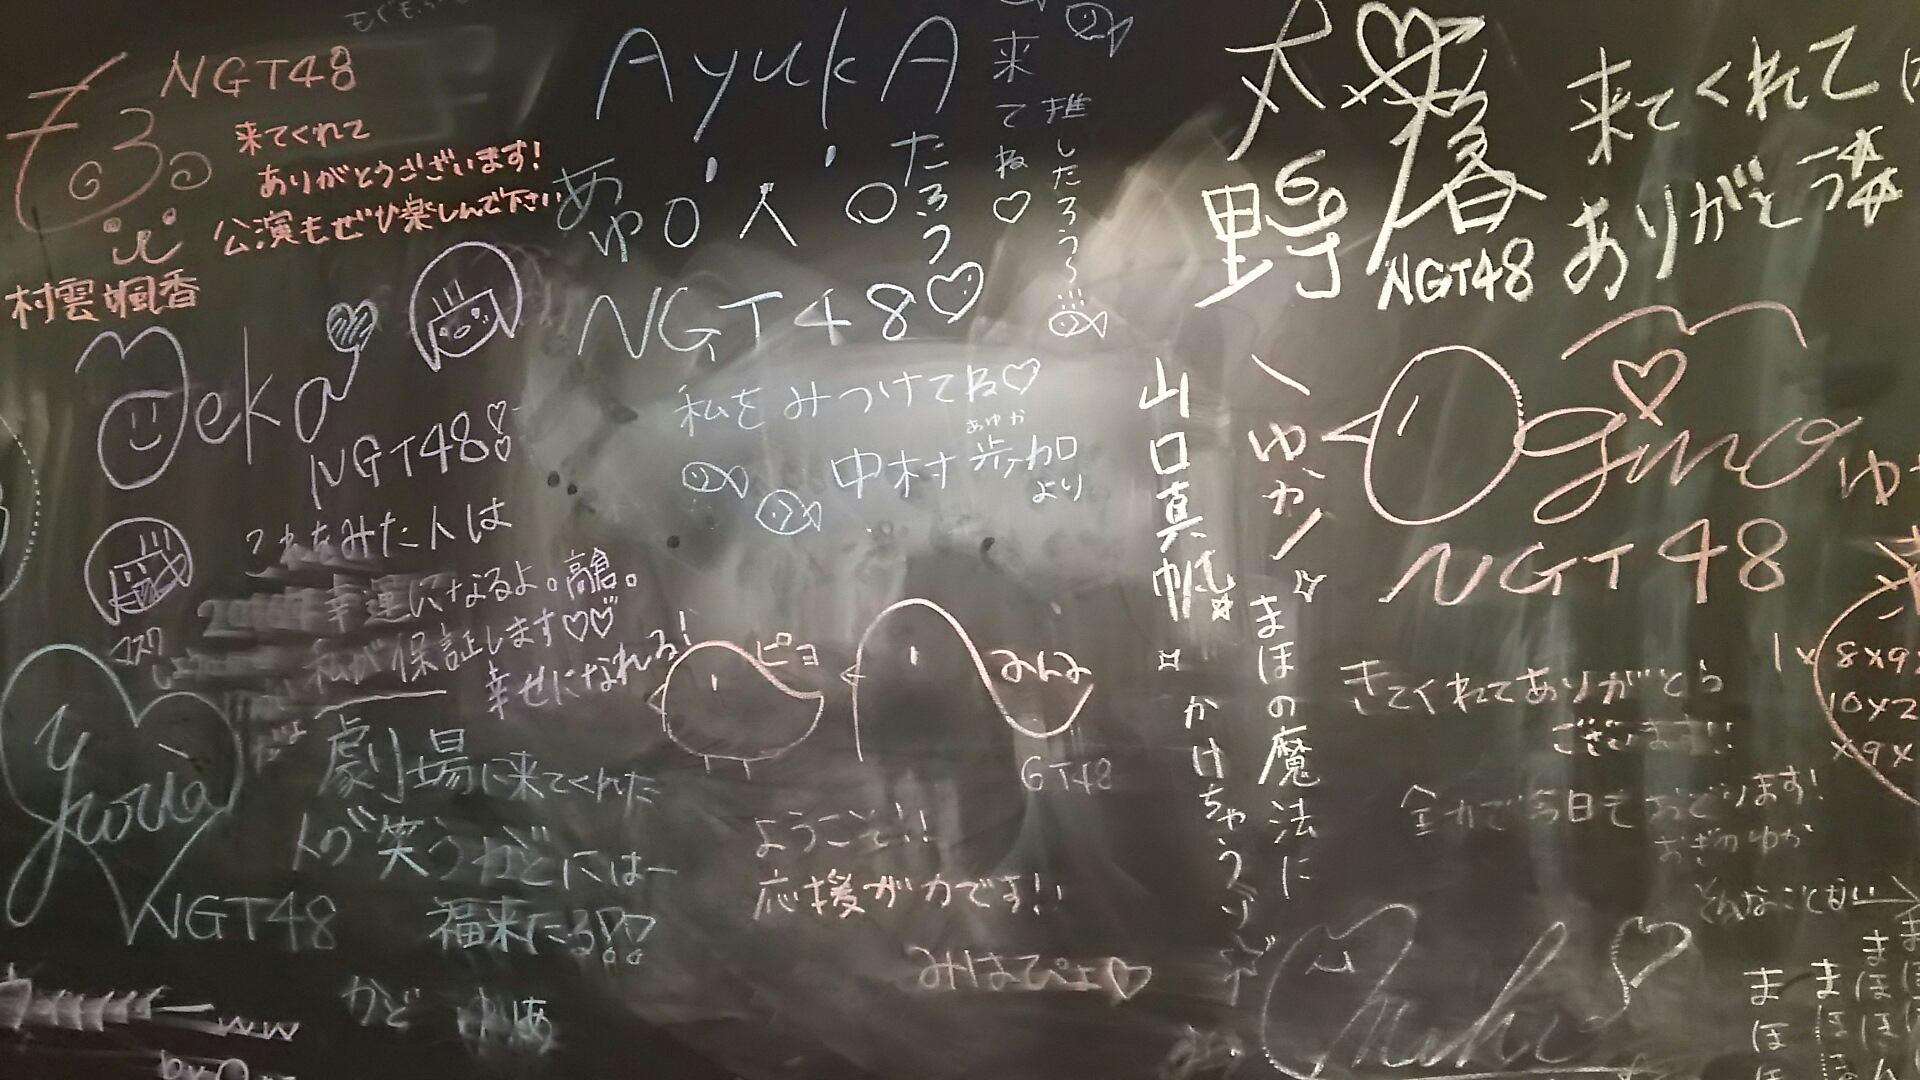 NGT48
来てくれて
ありがとうございます!
公演もぜひ楽しんで下さい
村雲颯香
AyukA
来てね♡
推したろう〜
あゆ
たろう
NGT48♡
私をみつけてね♡
あゆか
中村歩加
より
大野
NGT48
来てくれて
ありがとう
NGT48
これをみた人は
幸運になるよ。高倉。
私が保証します♡♡
幸せになれる!
劇場に来てくれた
人の"笑うかどには一
福来たる!?
NGT48
かど ゆりあ
ww
ピヨ
GT48
ようこそ!!
応援が力です!!
みはたぴよ♡
山口真帆
まほの魔法に
かけちゃうゾ
ゆか
Ogino
NGT48
きてくれてありがとう
ございます!!
全力で今日もおどります!
おぎのゆか
そんなことない
8x9
10x2
x9x
まほ
まほ
まほ